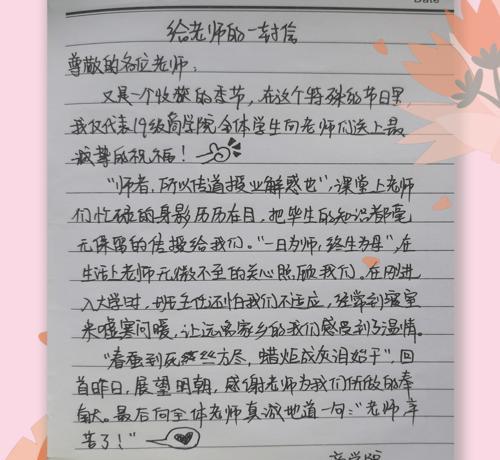 Date
给老师的一封信
尊敬的各位老师:
又是一个收获的季节,在这个特殊的节日里,
我仅代表19级商学院全体学生向老师们送上最
诚挚的祝福!
“师者,所以传道授业解惑也”,课堂上老师
们忙碌的身影历历在目,把毕生的知识都毫
无保留的传授给我们。“一日为师,终生为母”,在
生活上老师无微不至的关心照顾我们。在刚进
入大学时,班主任还怕我们不适应,经常到寝室
来嘘寒问暖,让远离家乡的我们感受到了温情。
“春蚕到死丝方尽,蜡炬成灰泪始干”,回
首昨日,展望明朝,感谢老师为我们所做的奉
献。最后向全体老师真诚地道一句:“老师辛
苦了!”
商学院